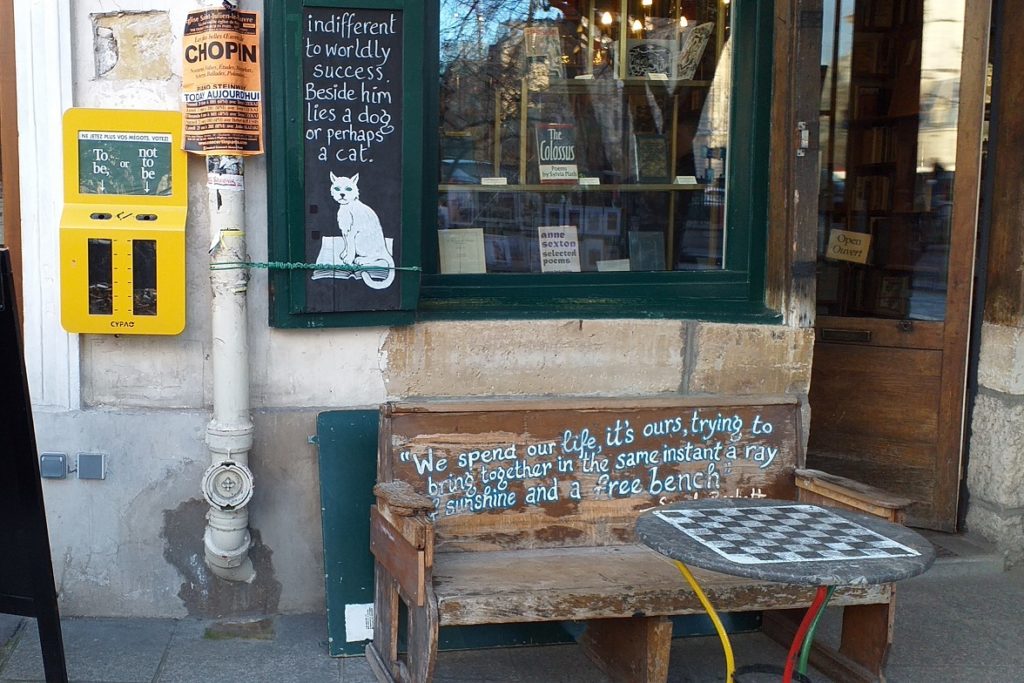 Eglise Saint-Julien-le-Pauvre
CHOPIN
PIANO STEINWAY
TODAY AUJOURDHUI
NE JETEZ PLUS VOS MÉGOTS, VOTEZ!
To be,
or
not to be
CYPAO
indifferent
to worldly
success.
Beside him
lies a dog
or perhaps
a cat.
The
Colossus
Poems
by Sylvia Plath
anne
sexton
selected
poems
Open
Ouvert
"We spend our life, it's ours, trying to
bring together in the same instant a ray
of sunshine and a free bench"